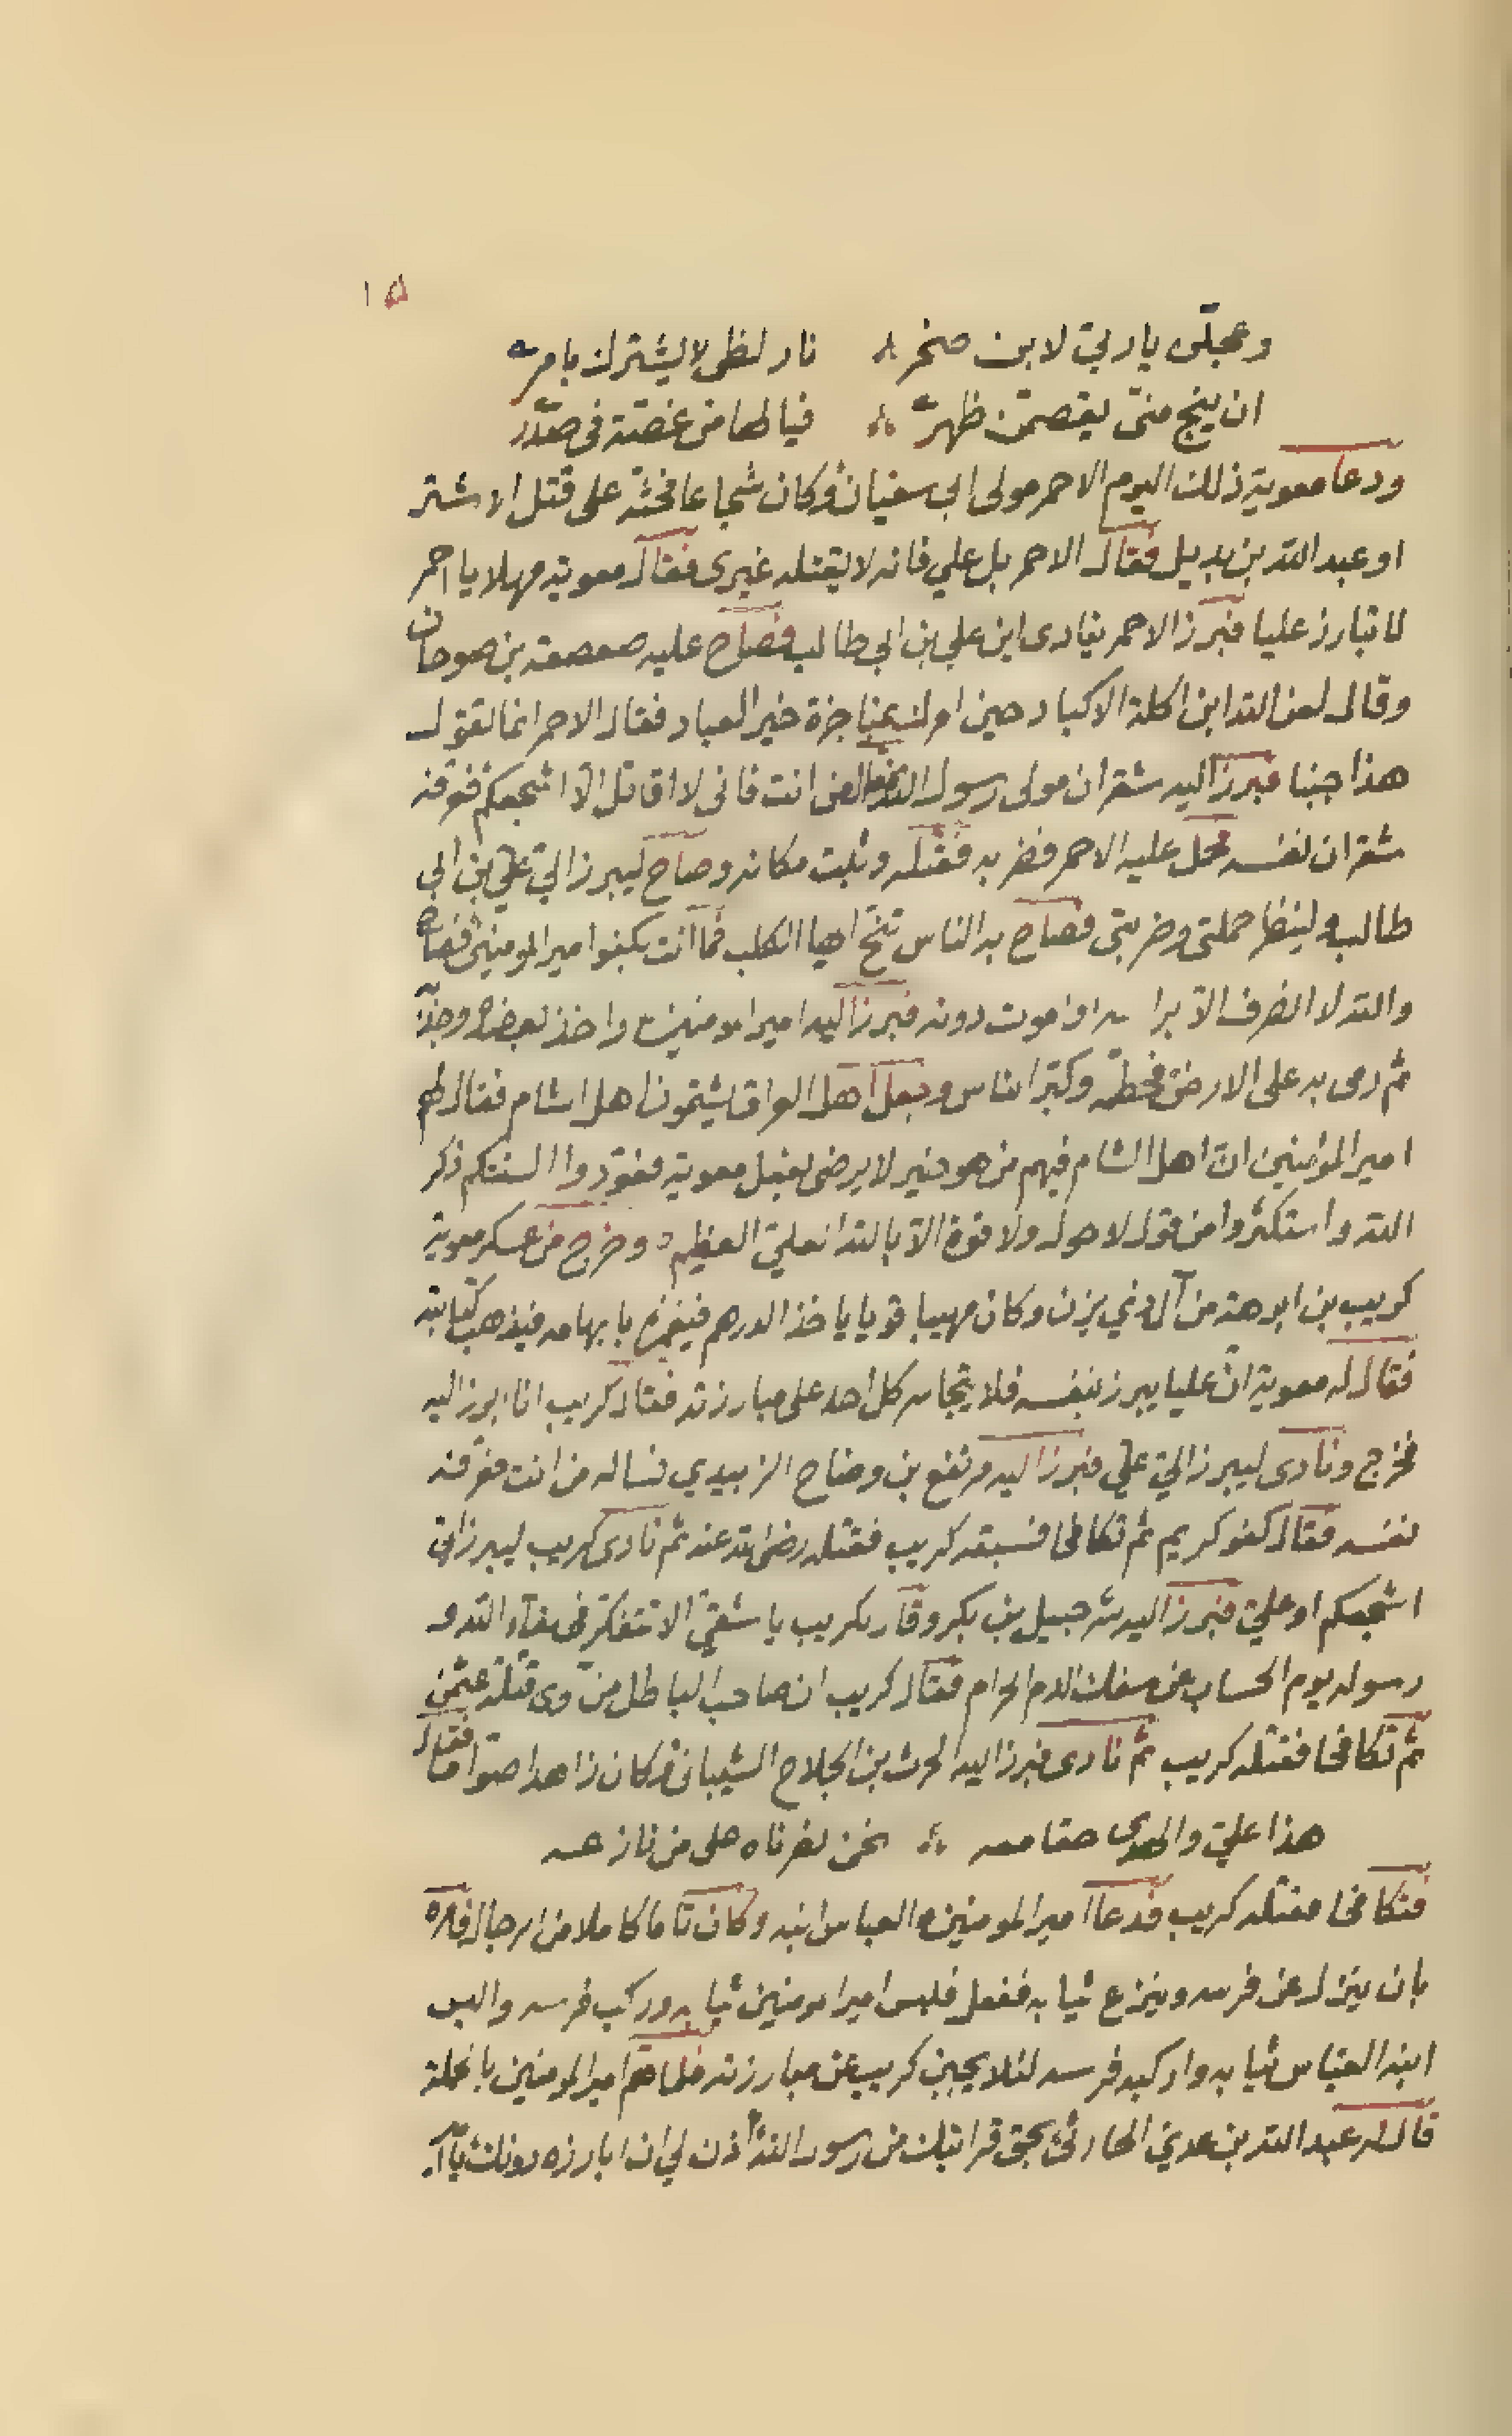 ١٥
وعجلّى ياربيّ لابن صخر نار لظى لا يشترك بامر
ان ينج منيّ يقصمنّ ظهري فيالها من غصّة في صدر
ودعا معوية ذلك اليوم الاحمر مولى ابي سفيان وكان شجاعا فحثه على قتل الاشتر
او عبد الله بن بديل فقال الاحمر بل علي فانه لا يقتله غيرى فقال معوية مهلا يا احمر
لا تبارز عليا فبرز الاحمر ينادى اين علي بن ابي طالب فصاح عليه صعصعة بن صوحان
وقال لعن الله ابن اكلة الاكباد حين امرك بمناجزة خير العباد فقال الاحمر انما تقول
هذا جبنا فبرز اليه شقران مولى رسول الله فقال من انت فانى لا اقاتل الّا اشجعكم فعرفه
شقران نفسه فحمل عليه الاحمر فضربه فقتله وثبت مكانه وصاح ليبرز اليّ علي بن ابي
طالب ولينظر حملتى وضربتى فصاح به الناس تنحّ ايها الكلب فما انت بكفو امير المومنين فصاح
والله لا انصرف الّا براسه او اموت دونه فبرز اليه امير المومنين واخذ بعضده وجذبه
ثم رمى به على الارض فحطمه وكبّر الناس وجعل اهل العراق يشتمون اهل الشام فقال لهم
امير المؤمنين انّ اهل الشام فيهم من هو خير لا يرضى بفعل معوية فعوّدوا السنتكم ذكر
الله واستكثروا من قول لا حول ولا قوة الّا بالله العليّ العظيم وخرج من عسكر معوية
كريب بن ابرهة من آل ذي يزن وكان مهيبا قويا ياخذ الدرهم فيغمزه بابهامه فيذهب كتابته
فقال له معوية انّ عليا يبرز بنفسه فلا يتجاسر كل احد على مبارزته فقال كريب انا ابرز اليه
فخرج ونادى ليبرز اليّ علي فبرز اليه مرتفع بن وضاح الزبيدي فساله من انت فعرفه
نفسه فقال كفو كريم ثم تكافحا فسبقه كريب فقتله رضى الله عنه ثم نادى كريب ليبرز الىّ
اشجعكم او عليّ فبرز اليه شرحبيل بن بكر وقال لكريب يا شقيّ الا تتفكر في لقاء الله و
رسوله يوم الحساب عن سفك الدم الحرام فقال كريب ان صاحب الباطل من آوى قتلة عثمن
ثم تكافحا فقتله كريب ثم نادى فبرز اليه الحرث بن الجلاح الشيبانى وكان زاهدا صوّاما فقال
هذا عليّ والهدى حقا معه نحن نصرناه على من نازعه
فتكافحا فقتله كريب فدعا امير المومنين العباس ابنه وكان تاما كاملا من الرجال فامره
بان ينزل عن فرسه وينزع ثيابه ففعل فلبس امير المومنين ثيابه وركب فرسه والبس
ابنه العباس ثيابه واركبه فرسه لئلا يجبن كريب عن مبارزته فلما همّ امير المومنين بالحملة
قال له عبد الله بن عدي الحارثي بحق قرابتك من رسول الله اذن لي ان ابارزه دونك